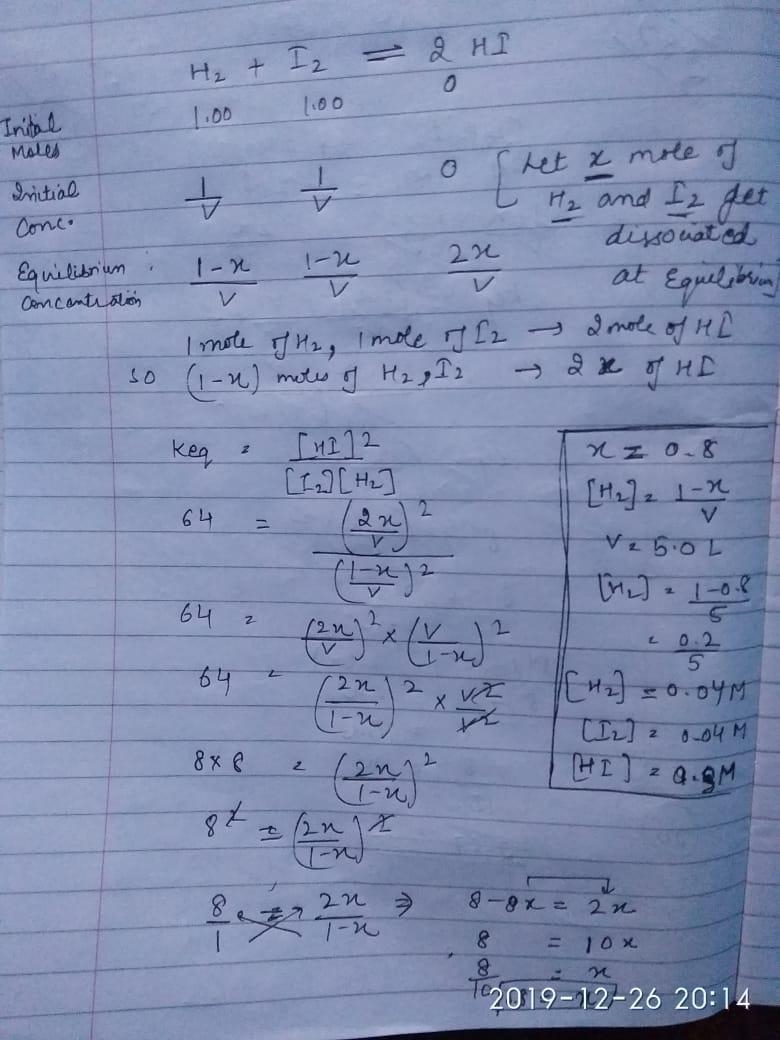 H₂ + I₂ ⇌ 2 HI
Inital Moles 1.00 1.00 0
Initial Conc. 1/V 1/V 0 [Let x mole of H₂ and I₂ get dissouated at Equilibrium
Equilibrium Concentration (1-x)/V (1-x)/V 2x/V
1 mole of H₂, 1 mole of I₂ → 2 mole of HI
so (1-x) moles of H₂, I₂ → 2x of HI
Keq = [HI]²/[I₂][H₂]
64 = (2x/V)²/((1-x)/V)²
64 = (2x/V)² × (V/(1-x))²
64 = (2x/(1-x))² × V²/V²
8×8 = (2x/(1-x))²
8² = (2x/(1-x))²
8/1 = 2x/(1-x) ⇒ 8-8x = 2x
8 = 10x
8/10 = x
x = 0.8
[H₂] = (1-x)/V
V = 5.0 L
[H₂] = (1-0.8)/5
= 0.2/5
[H₂] = 0.04M
[I₂] = 0.04M
[HI] =
2019-12-26 20:14